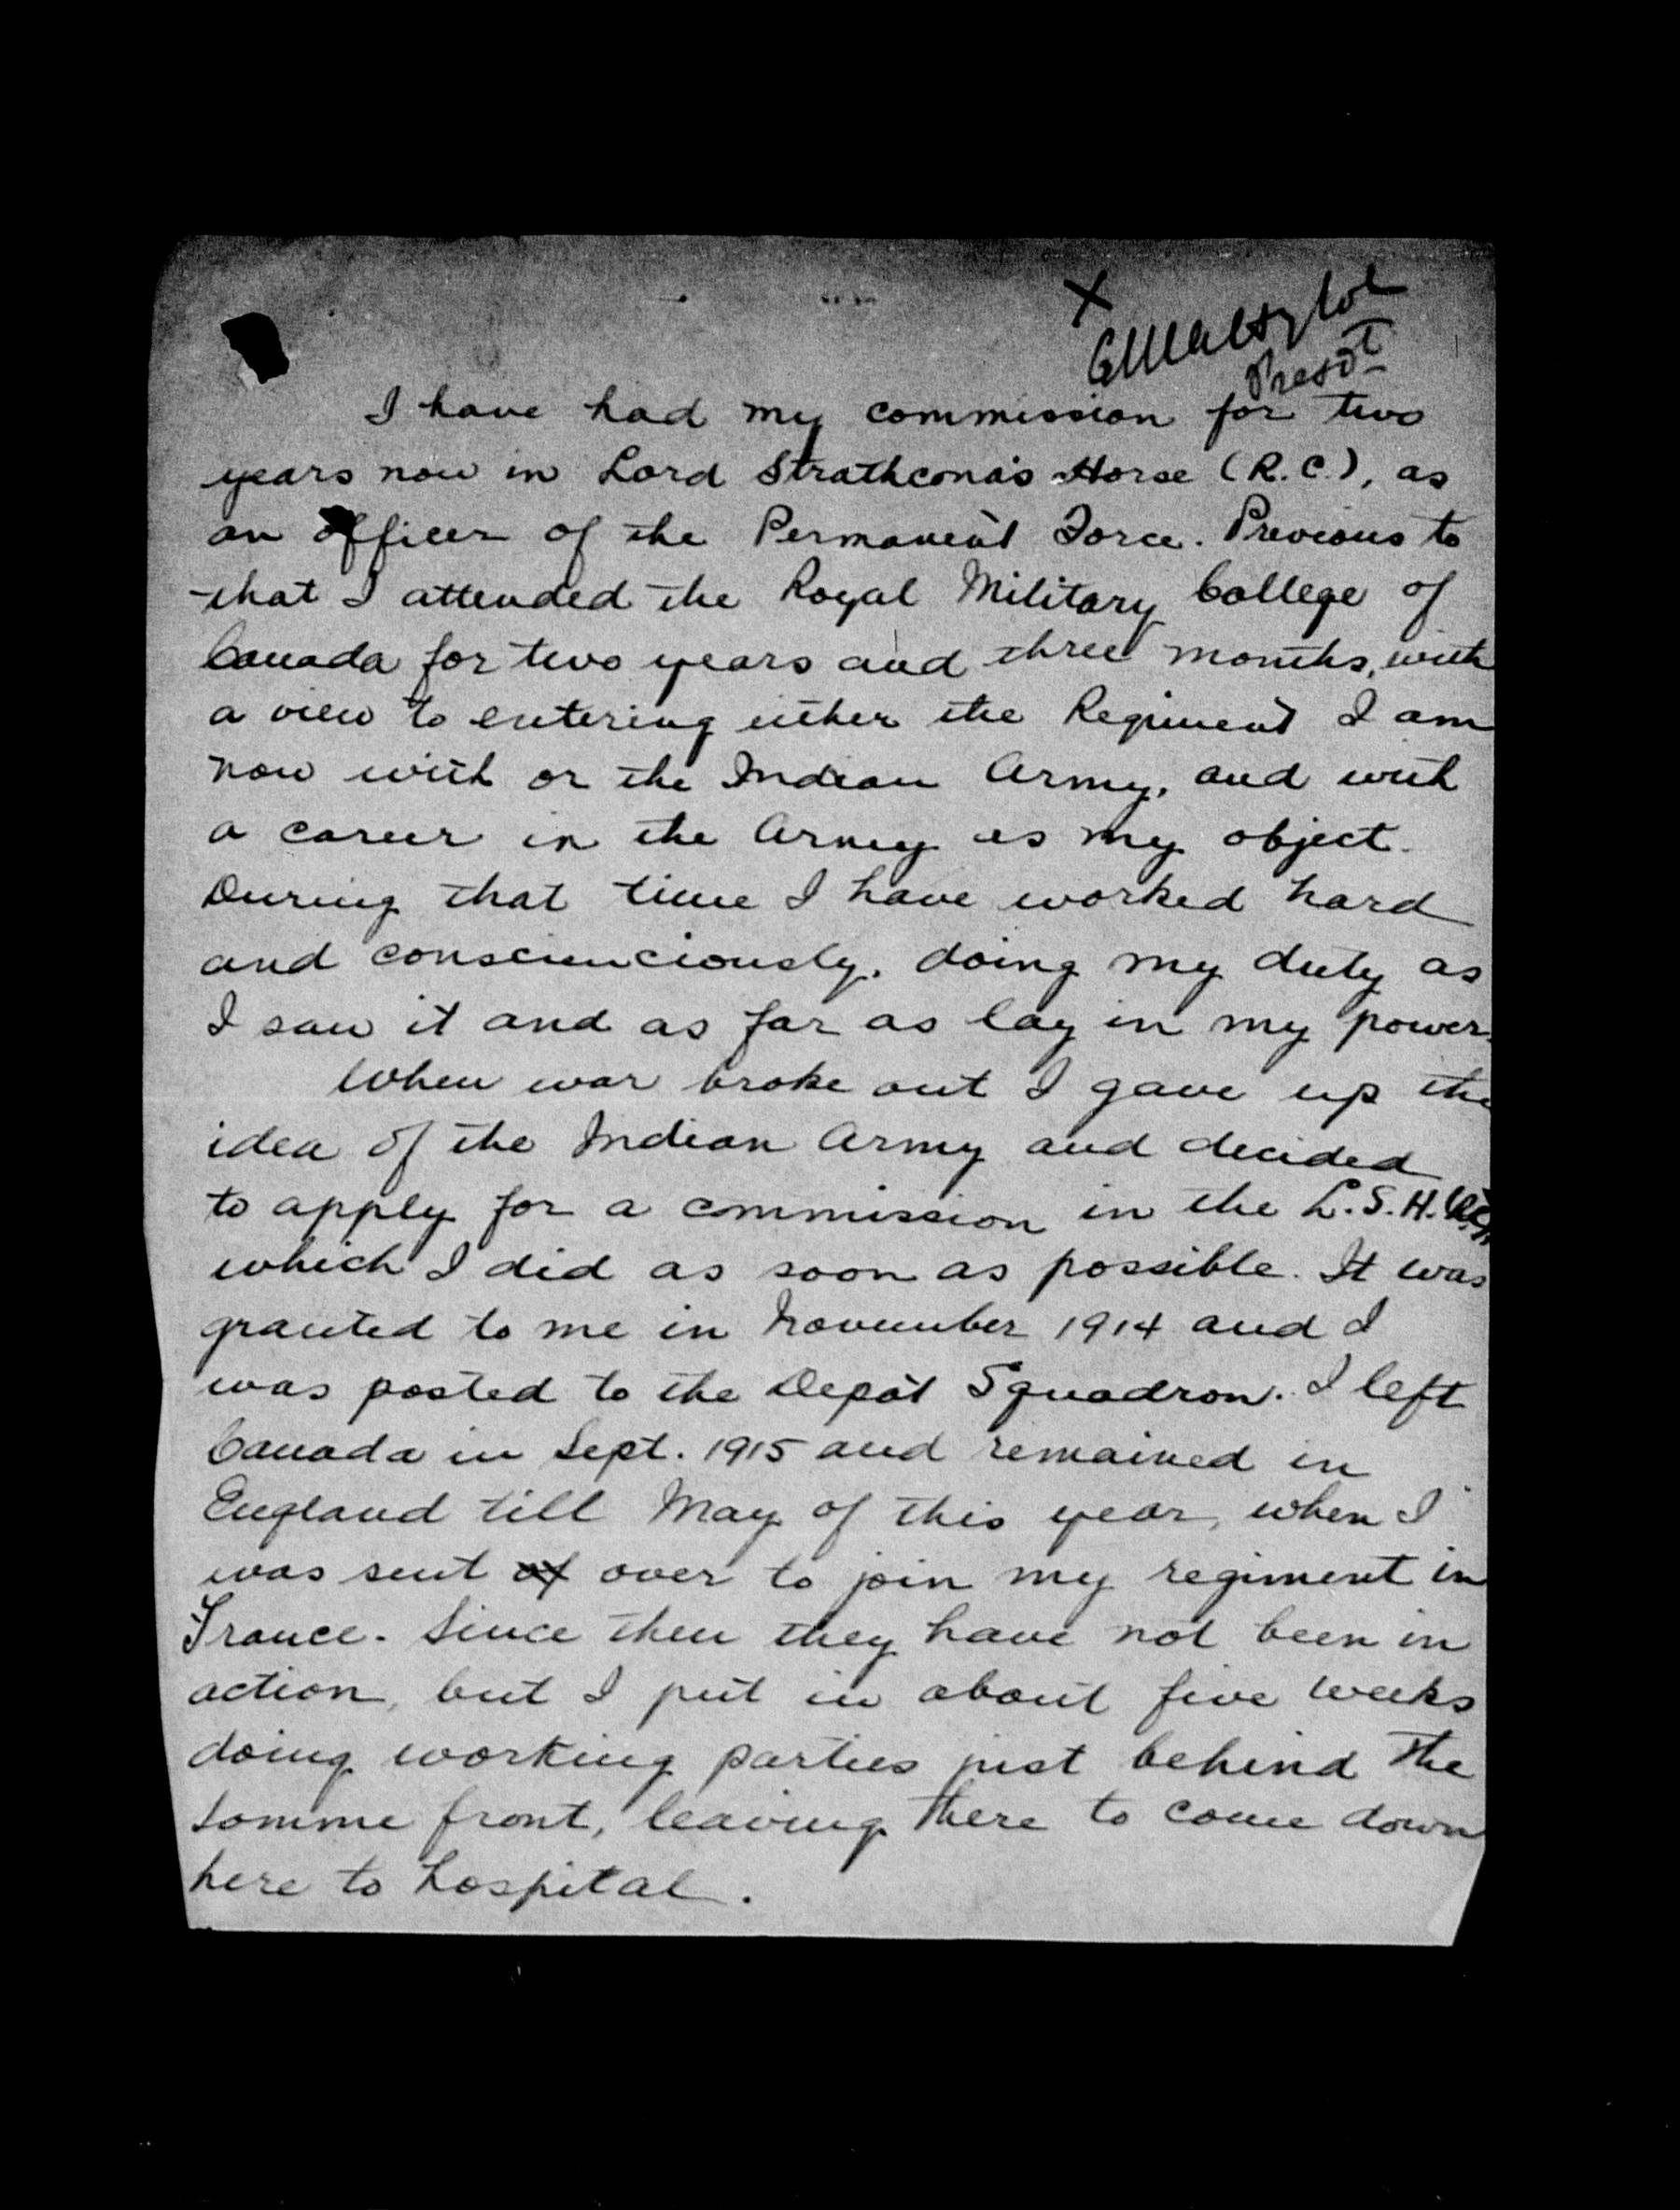 X
Col
Presdt
I have had my commission for two
years now in Lord Strathcona's Horse (R.C.), as
an Officer of the Permanent Force. Previous to
that I attended the Royal Military College of
Canada for two years and three months, with
a view to entering either the Regiment I am
now with or the Indian Army, and with
a career in the Army as my object.
During that time I have worked hard
and conscienciously, doing my duty as
I saw it and as far as lay in my power.
When war broke out I gave up the
idea of the Indian Army and decided
to apply for a commission in the L.S.H.(R.C.),
which I did as soon as possible. It was
granted to me in November 1914 and I
was posted to the Depôt Squadron. I left
Canada in Sept. 1915 and remained in
England till May of this year, when I
was sent of over to join my regiment in
France. Since then they have not been in
action, but I put in about five weeks
doing working parties just behind the
Somme front, leaving there to come down
here to hospital.